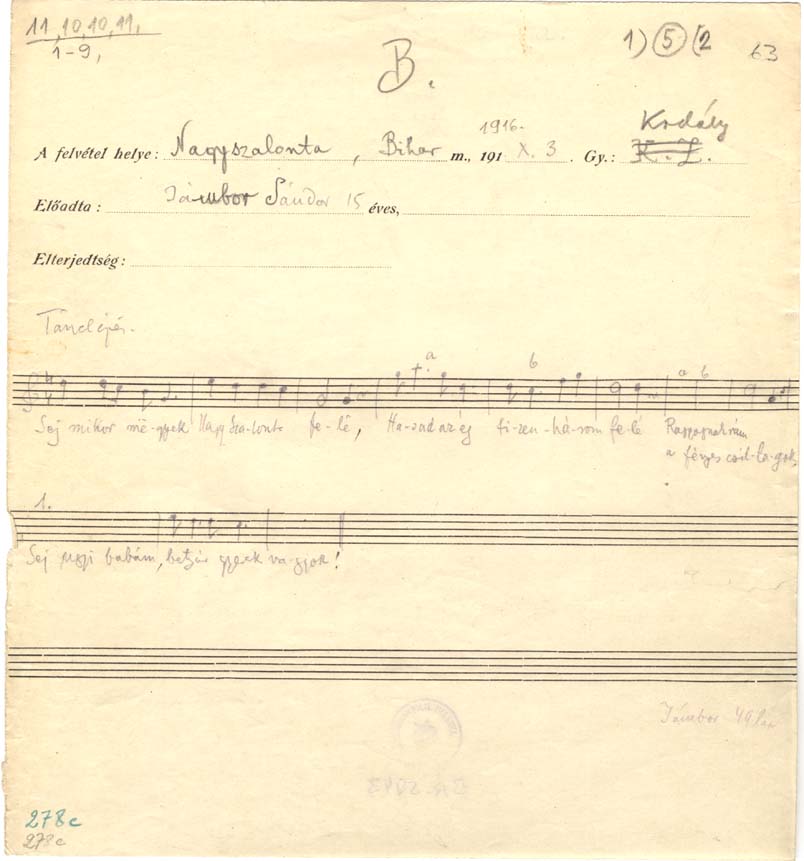 11, 10, 10, 11,
1-9,
B.
1) 5 (2
63
A felvétel helye: Nagyszalonta, Bihar m., 191 1916. X. 3. Gy.: Kodály K. Z.
Előadta: Jámbor Sándor 15 éves,
Elterjedtség:
Tánclépés.
a b a b
Sej mikor më-gyek Nagy Sza-lonta fe-lé, Ha-sad az ég ti-zen-há-rom fe-lé Ragyognak rám
a fényes csil-la-gok
1.
Sej babám, betyár gyerek va-gyok!
Jámbor 49 lap
278c
278c